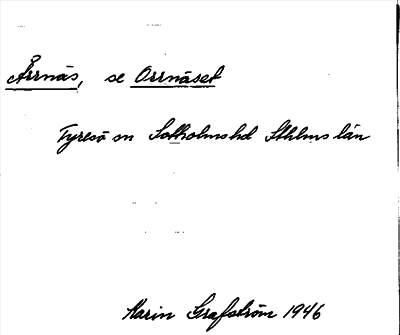 Årrnäs, se Orrnäset
Tyresö sn Sotholms hd Sthlms län
Karin Grafström 1946